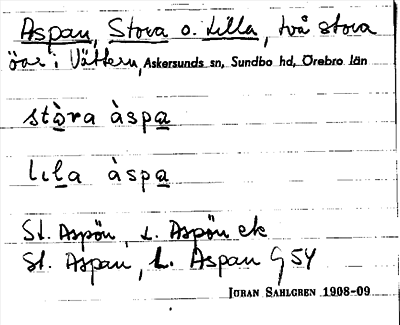 Aspan, Stora o. Lilla, två stora
öar i Vättern, Askersunds sn, Sundbo hd, Örebro län
stòra àspa
lɩla àspa
St. Aspön, L. Aspön ek
St. Aspan, L. Aspan G 54
JÖRAN SAHLGREN 1908-09